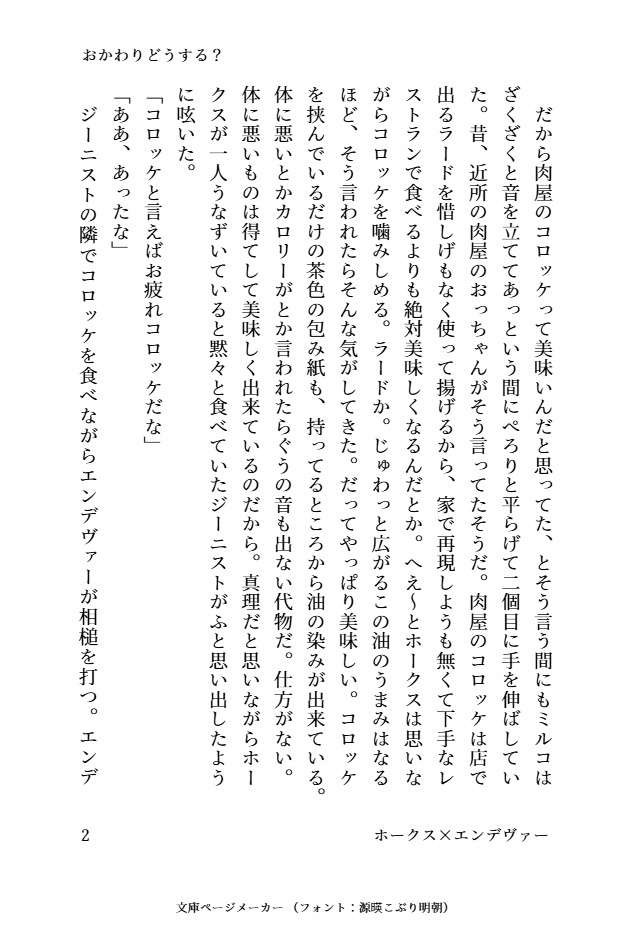 おかわりどうする？
　だから肉屋のコロッケって美味いんだと思ってた、とそう言う間にもミルコは
ざくざくと音を立ててあっという間にぺろりと平らげて二個目に手を伸ばしてい
た。昔、近所の肉屋のおっちゃんがそう言ってたそうだ。肉屋のコロッケは店で
出るラードを惜しげもなく使って揚げるから、家で再現しようも無くて下手なレ
ストランで食べるよりも絶対美味しくなるんだとか。へえ～とホークスは思いな
がらコロッケを噛みしめる。ラードか。じゅわっと広がるこの油のうまみはなる
ほど、そう言われたらそんな気がしてきた。だってやっぱり美味しい。コロッケ
を挟んでいるだけの茶色の包み紙も、持ってるところから油の染みが出来ている。
体に悪いとかカロリーがとか言われたらぐうの音も出ない代物だ。仕方がない。
体に悪いものは得てして美味しく出来ているのだから。真理だと思いながらホー
クスが一人うなずいていると黙々と食べていたジーニストがふと思い出したよう
に呟いた。
「コロッケと言えばお疲れコロッケだな」
「ああ、あったな」
　ジーニストの隣でコロッケを食べながらエンデヴァーが相槌を打つ。エンデ
2
ホークス×エンデヴァー
文庫ページメーカー（フォント：源暎こぶり明朝）